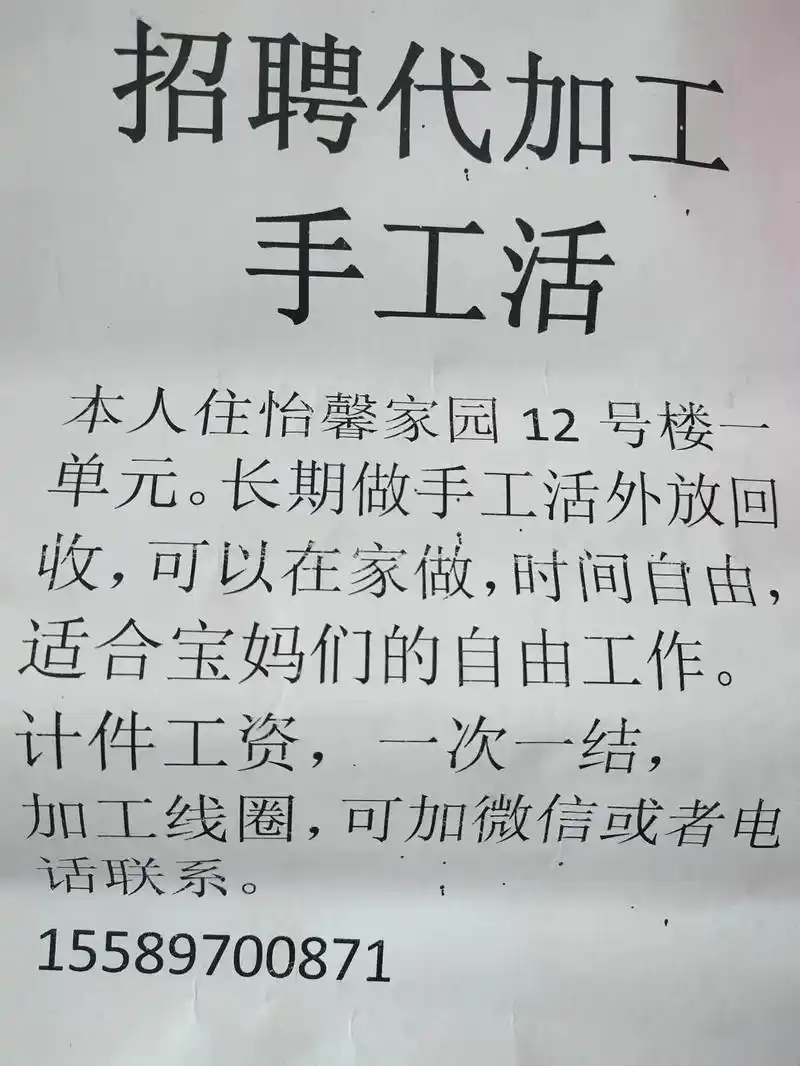 招聘代加工
手工活
本人住怡馨家园 12 号楼一
单元。长期做手工活外放回
收，可以在家做，时间自由，
适合宝妈们的自由工作。
计件工资，一次一结，
加工线圈，可加微信或者电
话联系。
15589700871